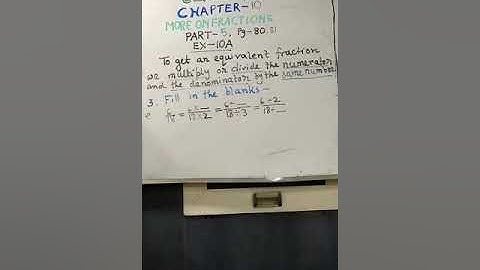 CHAPTER-10
MORE ON FRACTIONS
PART-5, Pg-80,81
EX-10A
To get an equivalent fraction
we multiply or divide the numerator
and the denominator by the same number.
3. Fill in the blanks-
e 6/18 = 6×_/18×2 = 6÷_/18÷3 = 6÷2/18÷_